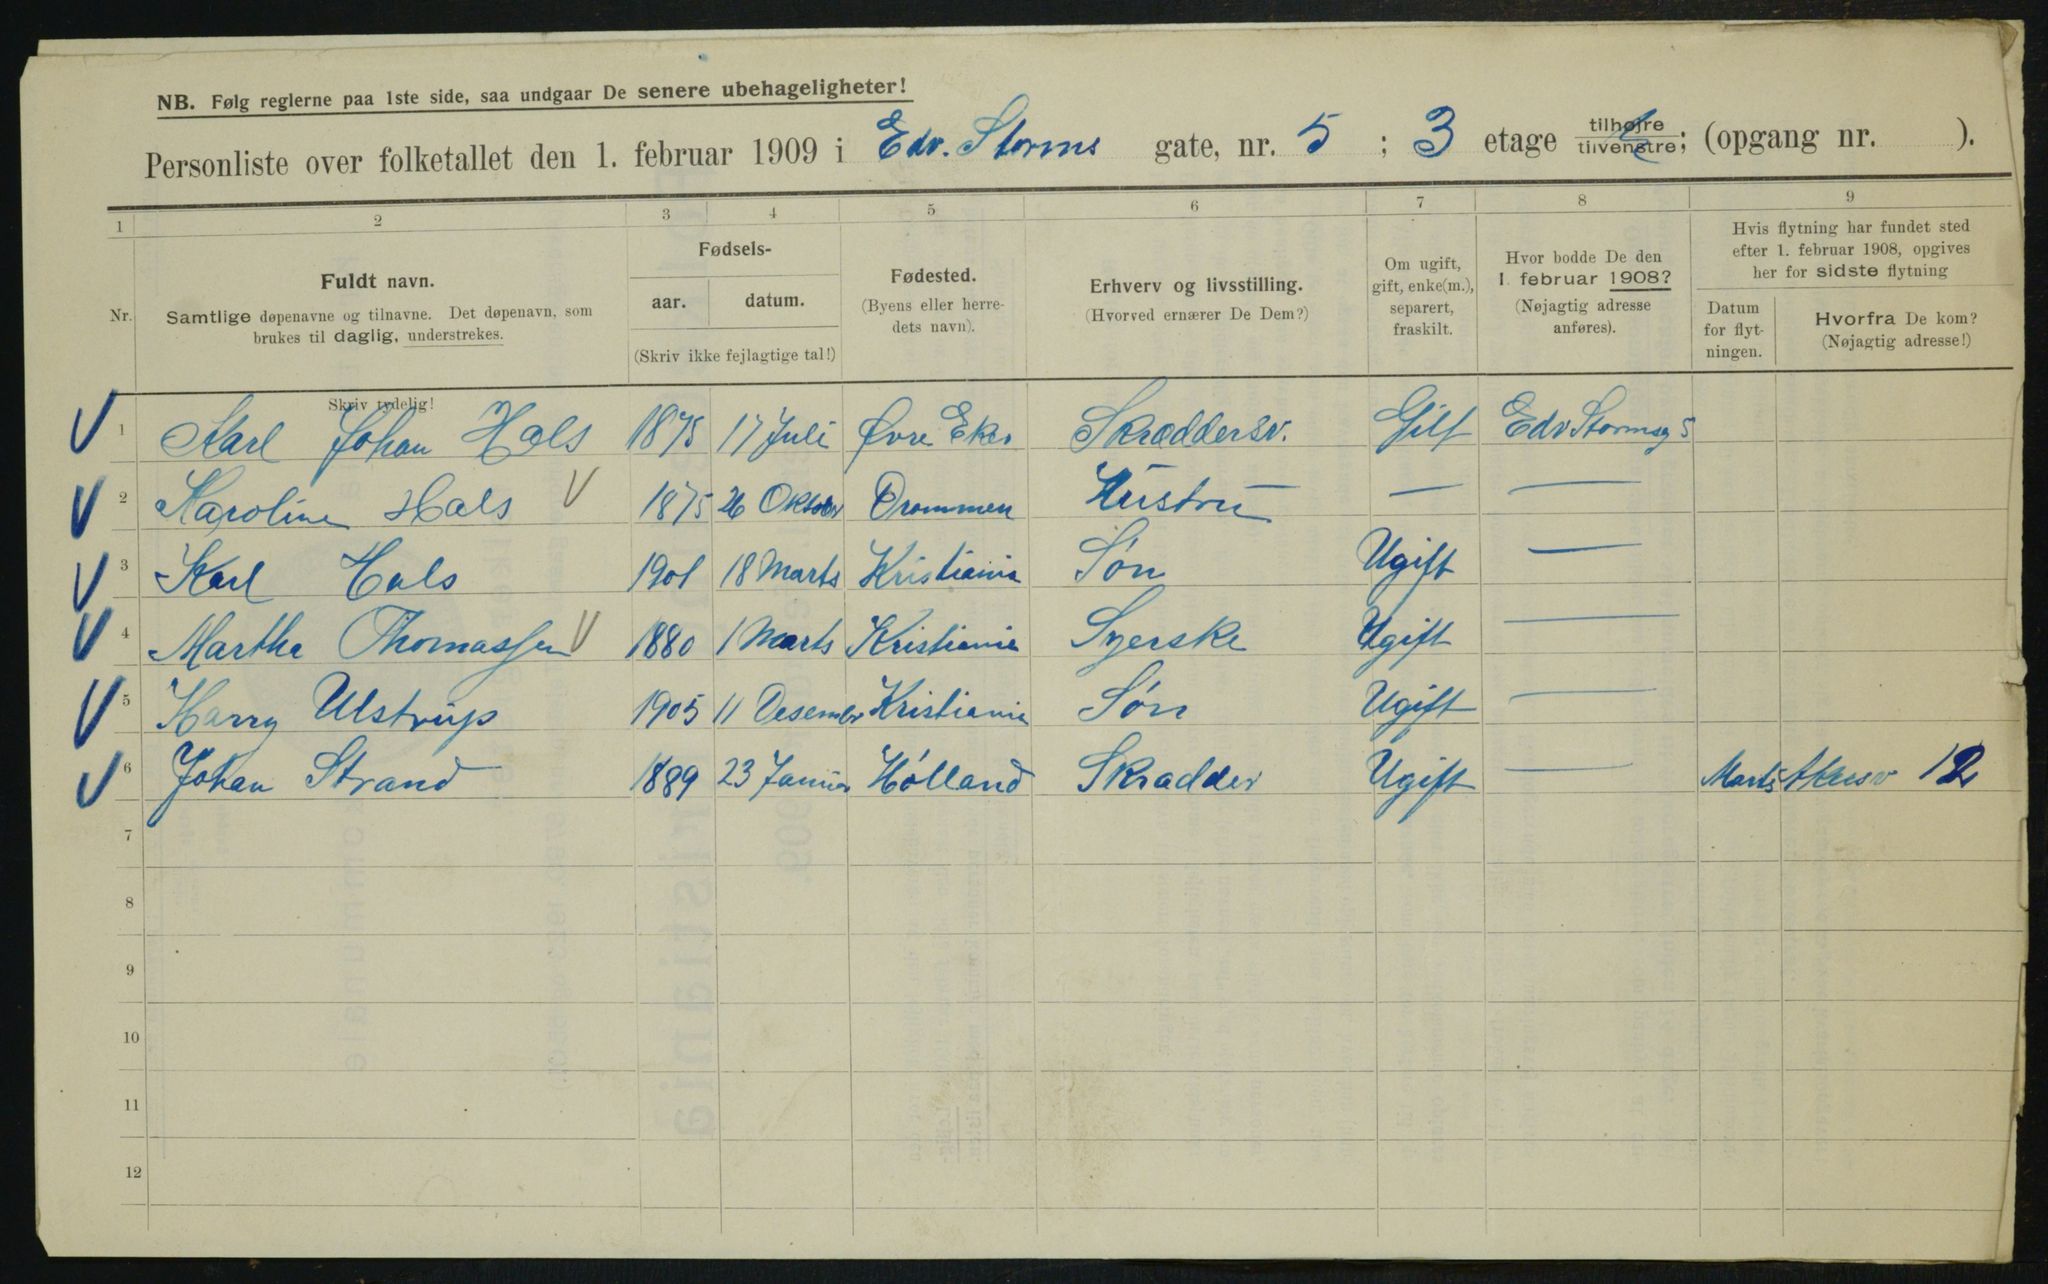 NB. Følg reglerne paa 1ste side, saa undgaar De senere ubehageligheter!
Personliste over folketallet den 1. februar 1909 i Edv. Storms gate, nr. 5 ; 3 etage tilhøjre tilvenstre; (opgang nr. ).
1 2 3 4 5 6 7 8 9
Nr.
Fuldt navn.
Samtlige døpenavne og tilnavne. Det døpenavn, som
brukes til daglig, understrekes.
Skriv tydelig!
Fødsels-
aar. datum.
(Skriv ikke fejlagtige tal!)
Fødested.
(Byens eller herre-
dets navn).
Erhverv og livsstilling.
(Hvorved ernærer De Dem?)
Om ugift,
gift, enke(m.),
separert,
fraskilt.
Hvor bodde De den
1. februar 1908?
(Nøjagtig adresse
anføres).
Hvis flytning har fundet sted
efter 1. februar 1908, opgives
her for sidste flytning
Datum
for flyt-
ningen.
Hvorfra De kom?
(Nøjagtig adresse!)
1 Karl Johan Hals 1875 17 Juli Øvre Eker Skræddersv. Gift Edv Stormsg 5
2 Karoline Hals 1875 26 Oktober Drammen Hustru — —
3 Karl Hals 1901 18 Marts Kristiania Søn Ugift —
4 Martha Thomassen 1880 1 Marts Kristiania Syerske Ugift —
5 Harry Ulstrup 1905 11 Desember Kristiania Søn Ugift —
6 Johan Strand 1889 23 Januar Hølland Skrædder Ugift — Marts Akersv 12
7
8
9
10
11
12